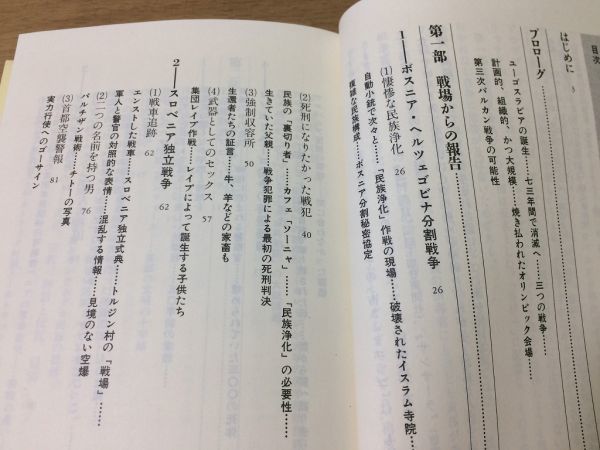 目次
はじめに
プロローグ
ユーゴスラビアの誕生……七三年間で消滅へ……三つの戦争
計画的、組織的、かつ大規模……焼き払われたオリンピック会場
第三次バルカン戦争の可能性
第一部 戦場からの報告
1──ボスニア・ヘルツェゴビナ分割戦争 26
(1)悽惨な民族浄化 26
自動小銃で次々と……「民族浄化」作戦の現場……破壊されたイスラム寺院
複雑な民族構成……ボスニア分割秘密協定
(2)死刑になりたかった戦犯 40
民族の「裏切り者」……カフェ「ソーニャ」……「民族浄化」の必要性
生きていた父親……戦争犯罪による最初の死刑判決
(3)強制収容所 50
生還者たちの証言……牛、羊などの家畜も
(4)武器としてのセックス 57
集団レイプ作戦……レイプによって誕生する子供たち
2──スロベニア独立戦争 62
(1)戦車追跡 62
エンストした戦車……スロベニア独立式典……トルジン村の「戦場」
軍人と警官の対照的な表情……混乱する情報……見境のない空爆
(2)二つの名前を持つ男 76
パルチザン戦術……チトーの写真
(3)首都空襲警報 81
実力行使へのゴーサイン